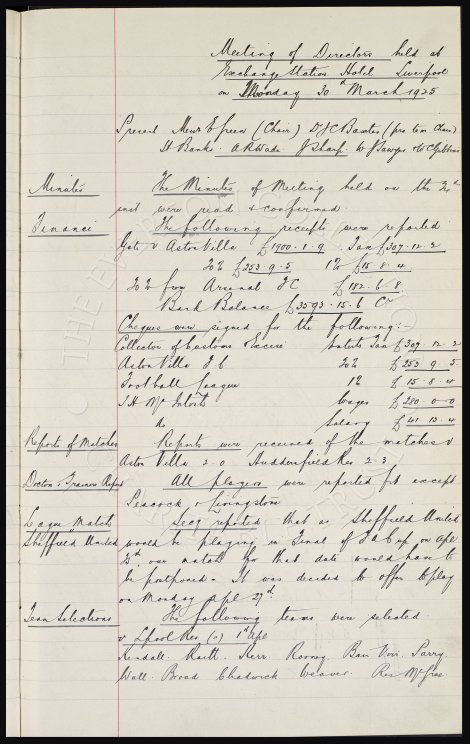 Meeting of Directors held at
Exchange Station Hotel Liverpool
on Monday 30th March 1925
Present Messrs E Green (Chair) Dr J C Baxter (pro tem Chair)
H Banks A R Wade J Sharp W J Sawyer W C Gibbins
Minutes The Minutes of Meeting held on the 24th
inst were read & confirmed.
Finance The following receipts were reported
Gate v Aston Villa £1900.1.9 Tax £307.12.2
20% £253.9.5 1% £15.8.4
20% from Arsenal FC £182.6.8
Bank Balance £3593.15.6 Cr
Cheques were signed for the following:-
Collector of Customs & Excise Entets Tax £307.12.2
Aston Villa F C 20% £253.9.5
Football League 1% £15.8.4
T. H. McIntosh Wages £280.0.0
do Salary £41.13.4
Reports of Matches Reports were received of the matches v
Aston Villa 2.0 Huddersfield Res 2.3
Doctor & Trainers Report All players were reported fit except
Peacock & Livingstone
League Match Secy reported that as Sheffield United
Sheffield United would be playing in Final of F A Cup on Apl
our match for that date would have to
be postponed. It was decided to offer to play
on Monday Apl 27th.
Team Selections The following teams were selected
v L'pool Res (a) 1st Apl
Kendall Raitt Kerr Rooney Bain Virr Parry
Wall Broad Chadwick Weaver Res McGrae